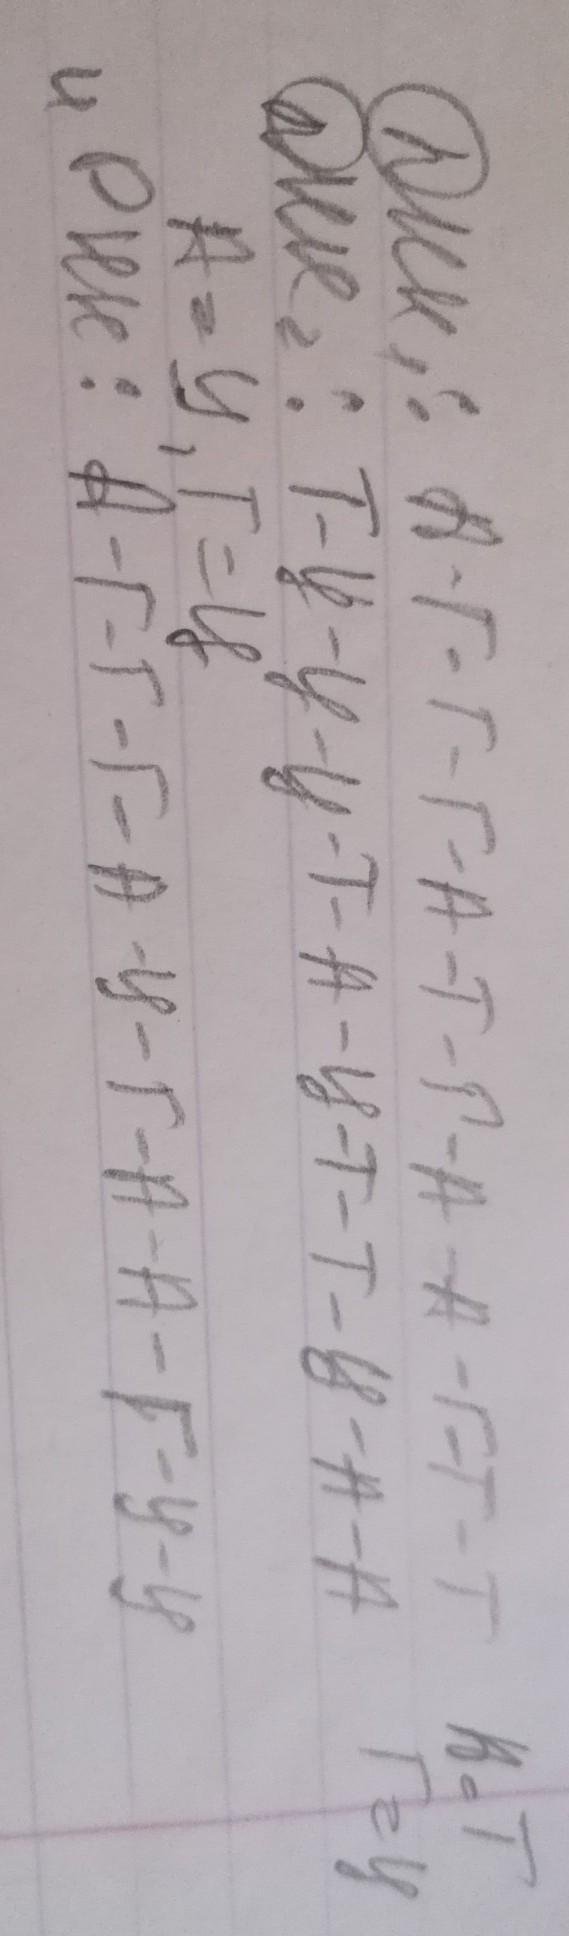 ДНК₁: А-Г-Г-Г-А-Т-Г-А-А-Г-Т-Т А=Т
ДНК₂: Т-Ц-Ц-Ц-Т-А-Ц-Т-Т-Ц-А-А Г=Ц
А=У, Г=Ц
и РНК: А-Г-Г-Г-А-У-Г-А-А-Г-У-У